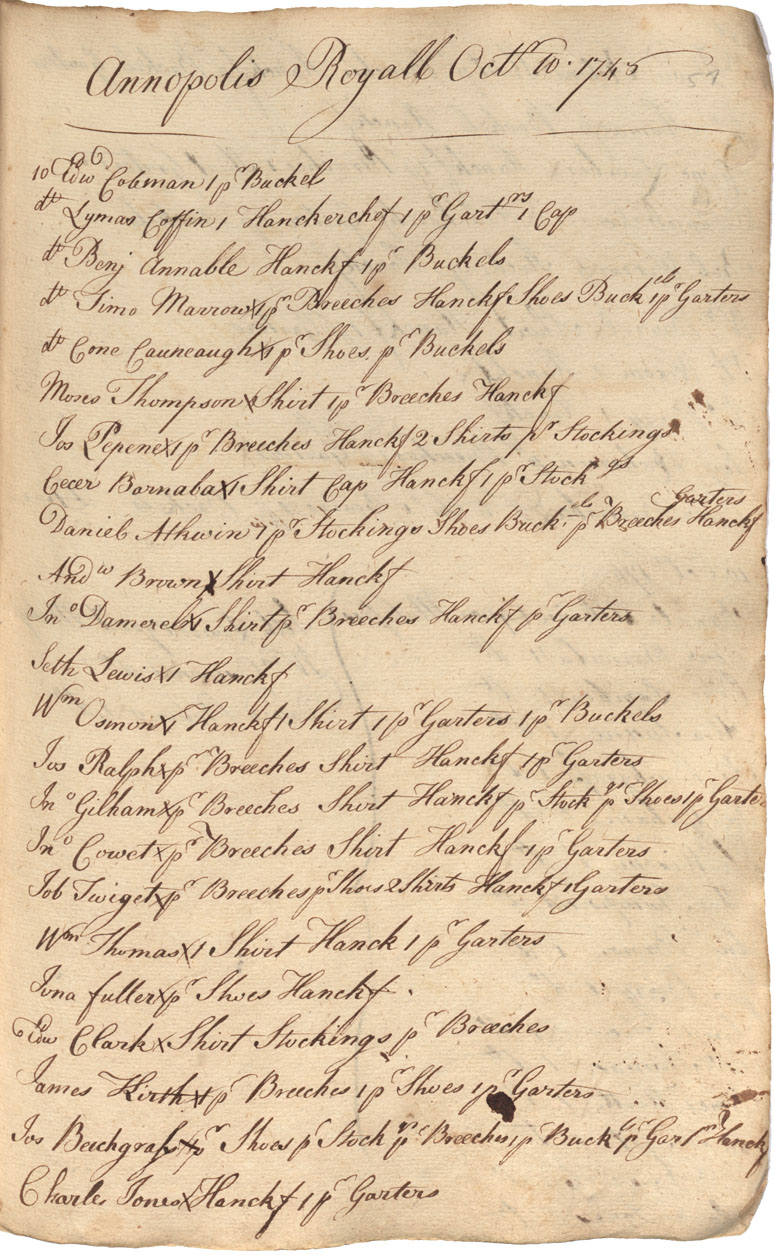 Annopolis Royall Octr 10. 1746
10 Edwd Coleman 1 pr Buckel
dt Lymas Coffin 1 Hanckerchef 1 pr Gartrs 1 Cap
dt Benj Annable Hanckf 1 pr Buckels
dt Timo Marrow x 1 pr Breeches Hanckf Shoes Buckels 1 pr Garters
dt Cone Cauneaugh x 1 pr Shoes pr Buckels
Moses Thompson x Shirt 1 pr Breeches Hanckf
Jos Pepene x 1 pr Breeches Hanckf 2 Shirts pr Stockings
Cecer Barnaba x 1 Shirt Cap Hanckf 1 pr Stockgs
Daniel Athwin 1 pr Stockings Shoes Buckels pr Breeches Garters Hanckf
Andw Brown x Shirt Hanckf
Jno Damerel x 1 Shirt pr Breeches Hanckf pr Garters
Seth Lewis x 1 Hanckf
Wm Osmon x 1 Hanckf 1 Shirt 1 pr Garters 1 pr Buckels
Jos Ralph x pr Breeches Shirt Hanckf 1 pr Garters
Jno Gilham x pr Breeches Shirt Hanckf pr Stockgs pr Shoes 1 pr Garters
Jno Cowet x pr Breeches Shirt Hanckf 1 pr Garters
Job Twiget x pr Breeches pr Shoes 2 Shirts Hanckf 1 Garters
Wm Thomas x 1 Shirt Hanck 1 pr Garters
Jona fuller x pr Shoes Hanckf
Edw Clark x Shirt Stockings pr Breeches
James Kirth x 1 pr Breeches 1 pr Shoes 1 pr Garters
Jos Beachgrass x pr Shoes pr Stockgs pr Breeches 1 pr Buckls pr Gartrs Hanckf
Charles Jones x Hanckf 1 pr Garters